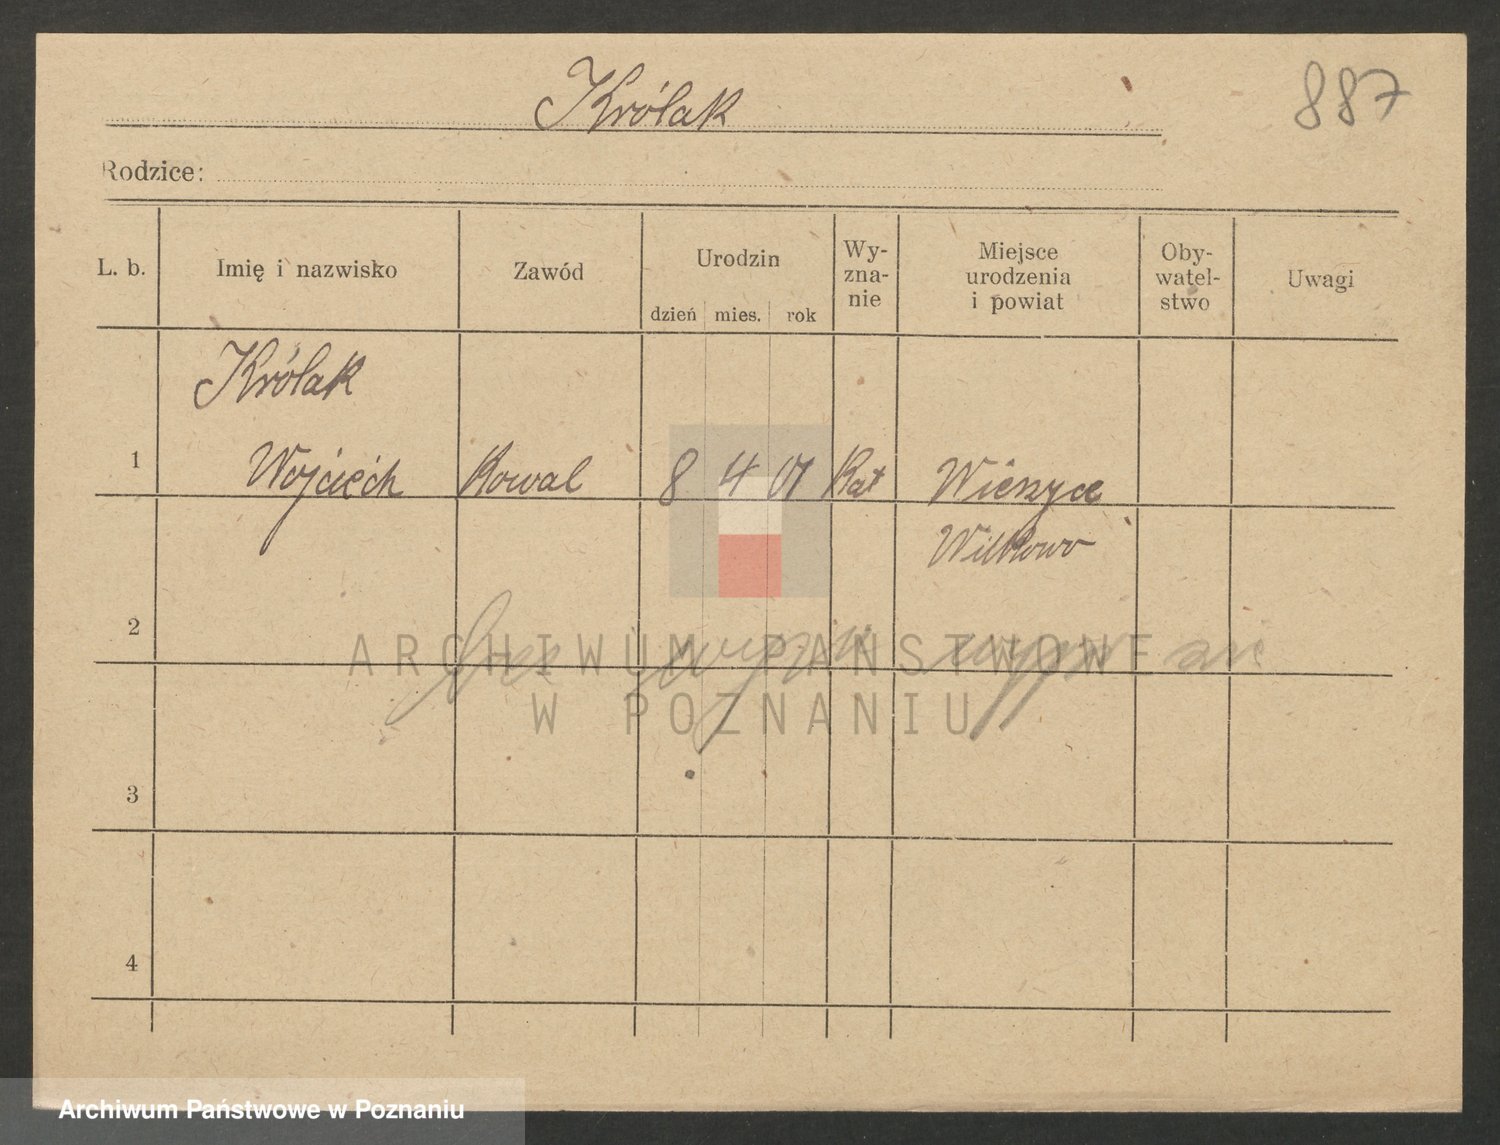 Królak
887
Rodzice:
L. b. Imię i nazwisko Zawód Urodzin dzień mies. rok Wy-zna-nie Miejsce urodzenia i powiat Oby-watel-stwo Uwagi
Królak
1 Wojciech Kowal 8 4 01 Kat Wierzyce
Witkowo
2
ARCHIWUM PAŃSTWOWE
W POZNANIU
3
4
Archiwum Państwowe w Poznaniu